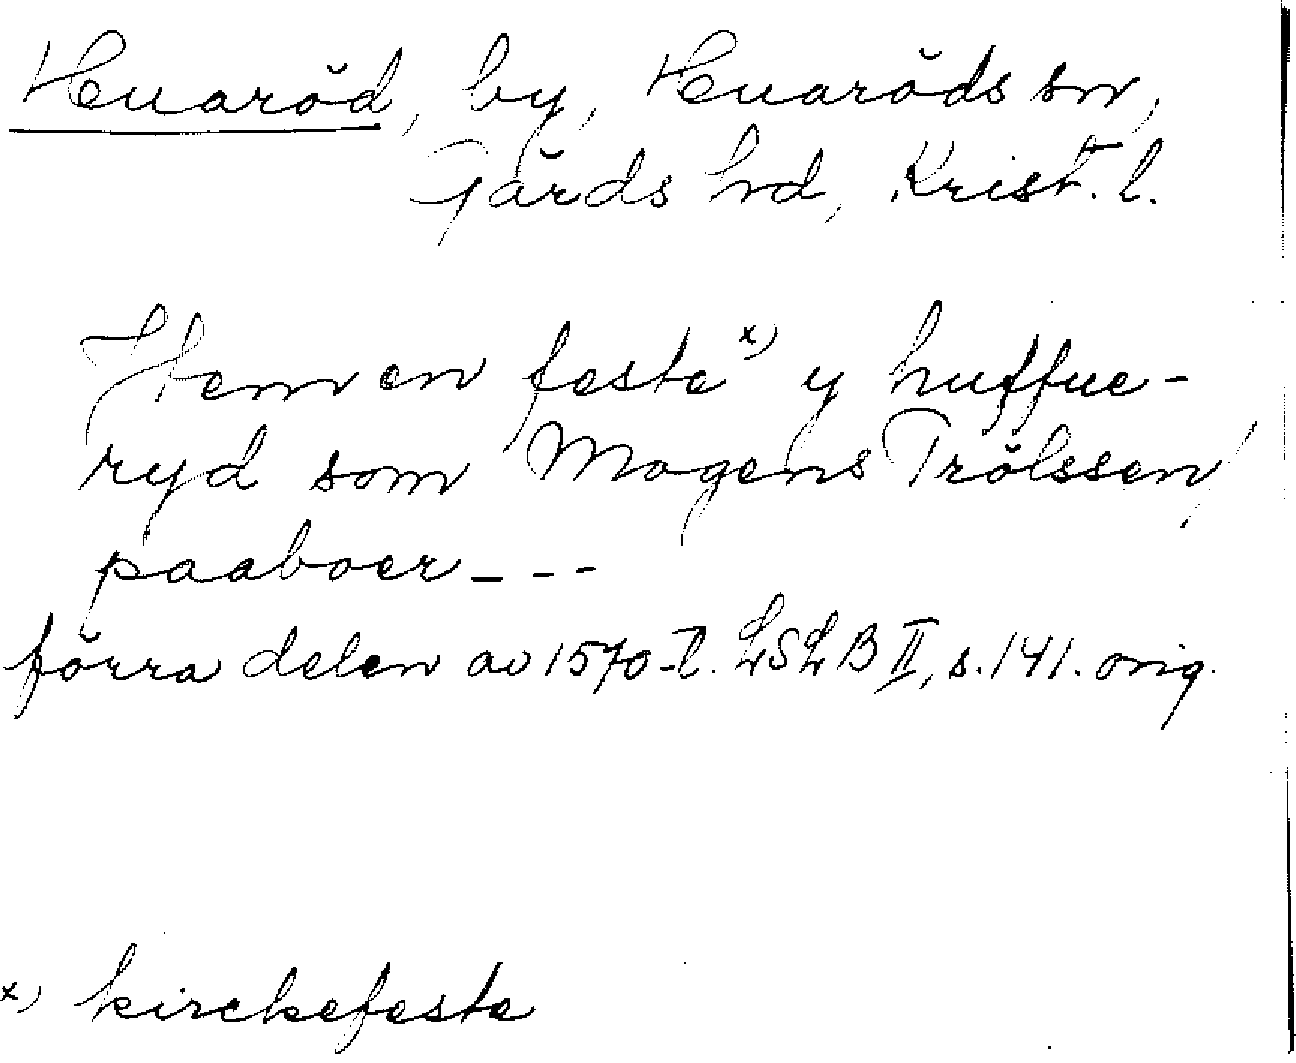 Huaröd, by, Huaröds sn,
Gärds hd, Krist. l.
Item en feste x) y huffue-
ryd som Mogens Trölssen
paaboer - - -
förra delen av 1570-t. LSLB II, s. 141. orig.
x) kirckefeste